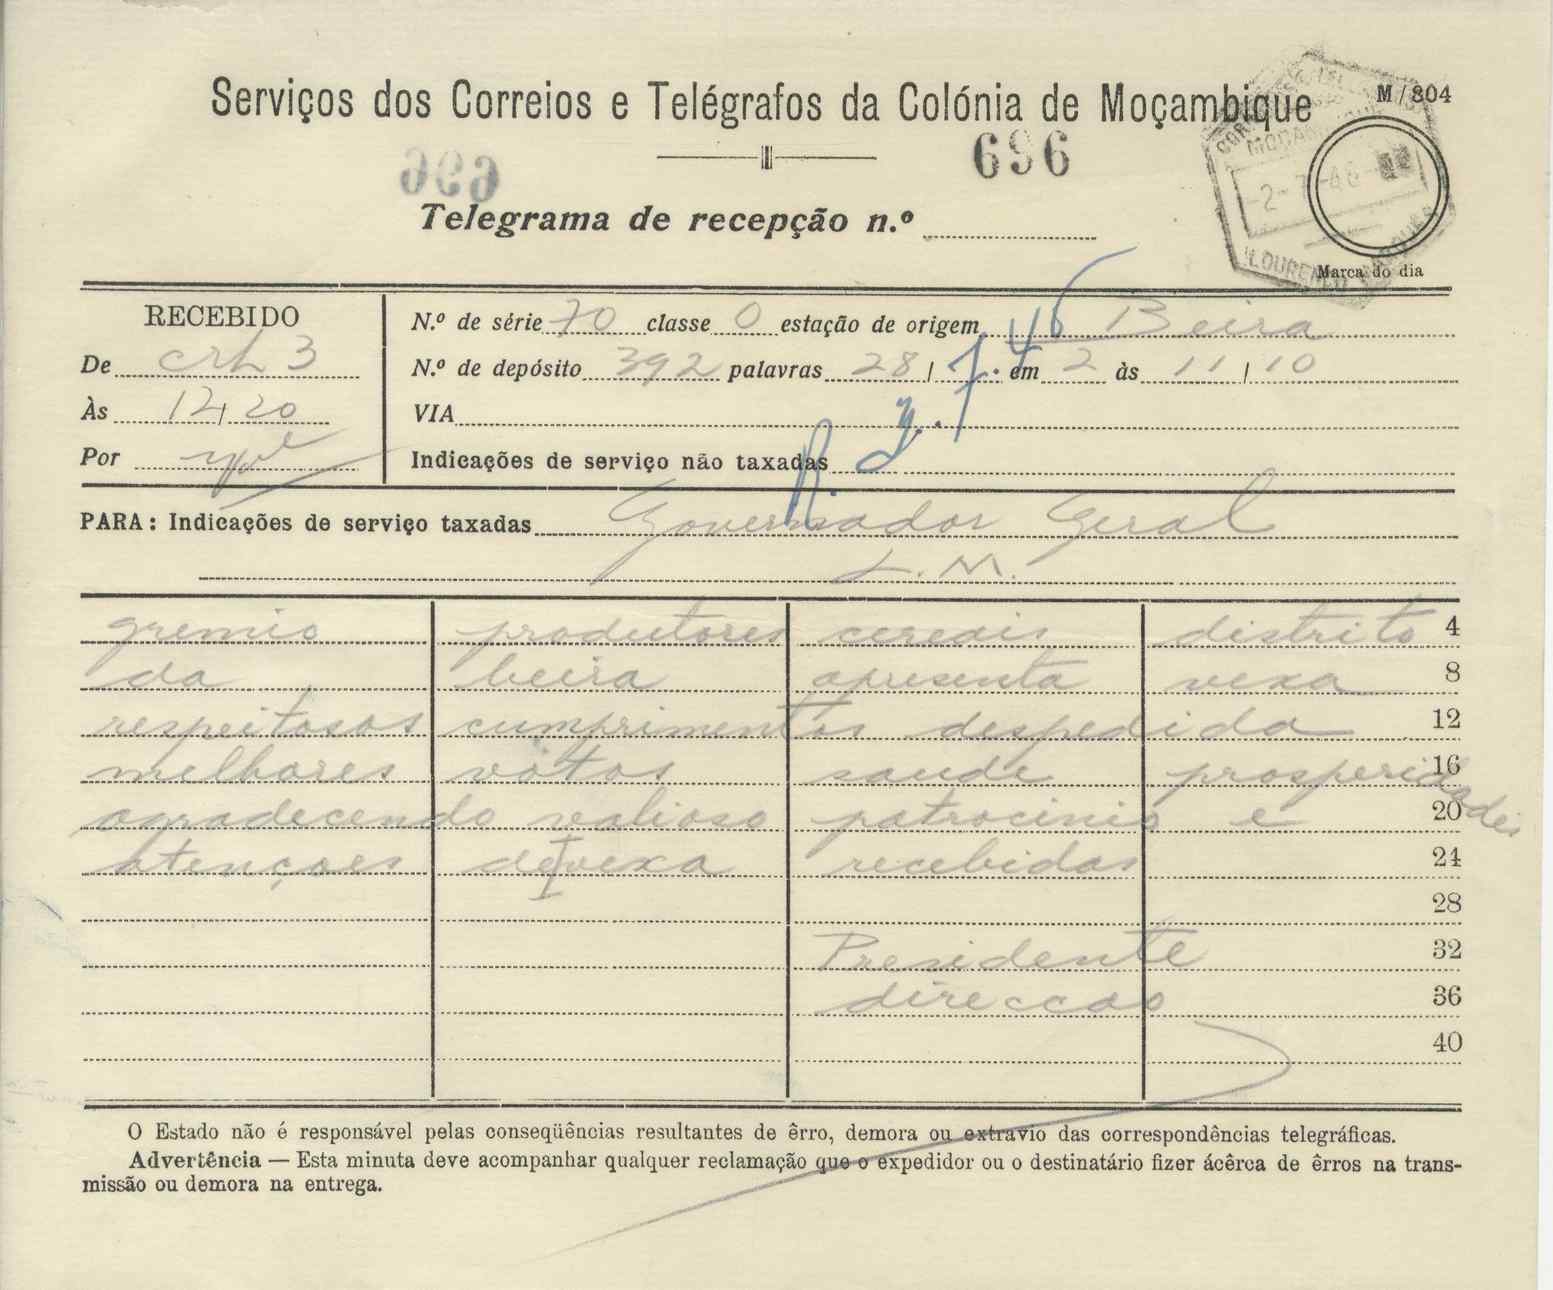 Serviços dos Correios e Telégrafos da Colónia de Moçambique
M/804
696
Telegrama de recepção n.º
MOÇAMBIQUE
2-7-46
LOURENÇO MARQUES
Marca do dia
RECEBIDO
N.º de série 70 classe 0 estação de origem Beira
De crh 3
N.º de depósito 392 palavras 28 / em 2 às 11 / 10
Às 12/20
VIA
Por
Indicações de serviço não taxadas
PARA: Indicações de serviço taxadas Governador Geral
L. M.
gremio produtores cereais distrito 4
da beira apresenta vexa 8
respeitosos cumprimentos despedida 12
melhores votos saude prosperidades 16
agradecendo valioso patrocinio e 20
atençoes de vexa recebidas 24
28
Presidente 32
direccao 36
40
O Estado não é responsável pelas conseqüências resultantes de êrro, demora ou extravio das correspondências telegráficas.
Advertência — Esta minuta deve acompanhar qualquer reclamação que o expedidor ou o destinatário fizer ácêrca de êrros na trans-
missão ou demora na entrega.